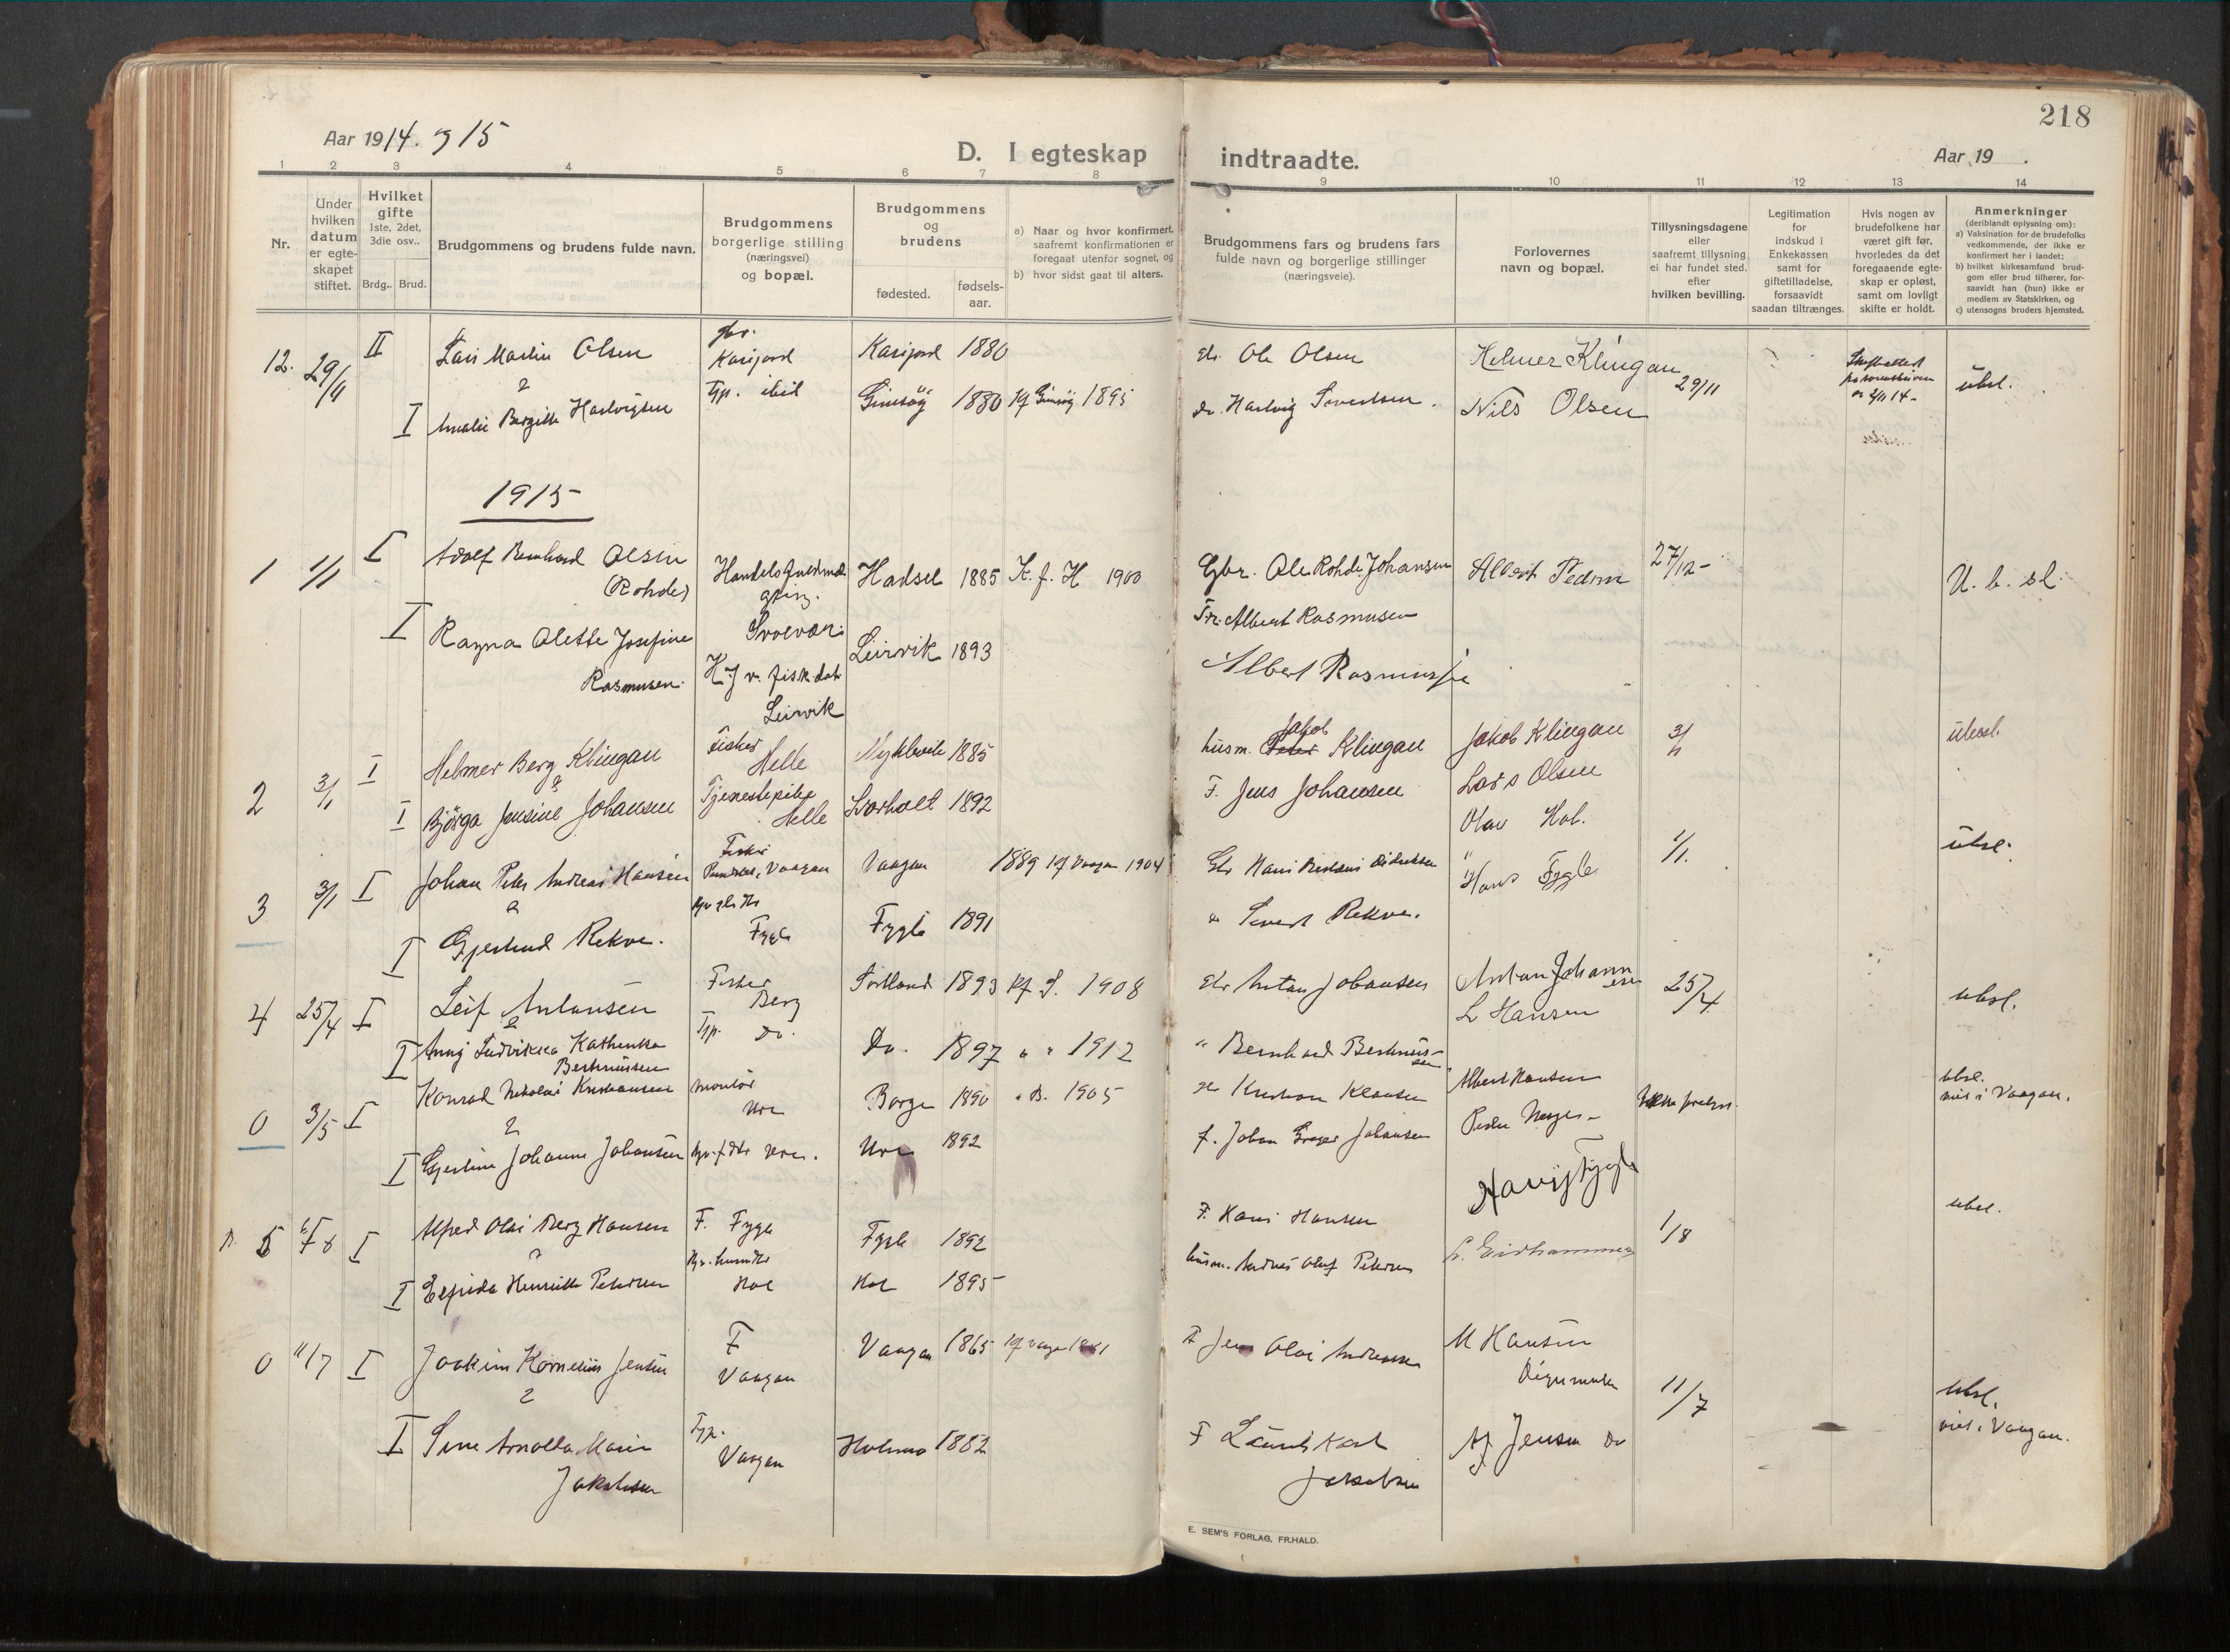 218
Aar 1914. og 15
D. I egteskap indtraadte.
Aar 19 .
1 2 3 4 5 6 7 8 9 10 11 12 13 14
Nr.
Under hvilken datum er egteskapet stiftet.
Hvilket gifte 1ste, 2det, 3die osv..
Brdg.. Brud.
Brudgommens og brudens fulde navn.
Brudgommens borgerlige stilling (næringsvei) og bopæl.
Brudgommens og brudens
fødested.
fødsels-aar.
a) Naar og hvor konfirmert, saafremt konfirmationen er foregaat utenfor sognet, og
b) hvor sidst gaat til alters.
Brudgommens fars og brudens fars fulde navn og borgerlige stillinger (næringsveie).
Forlovernes navn og bopæl.
Tillysningsdagene eller saafremt tillysning ei har fundet sted, efter hvilken bevilling.
Legitimation for indskud i Enkekassen samt for giftetilladelse, forsaavidt saadan tiltrænges.
Hvis nogen av brudefolkene har været gift før, hvorledes da det foregaaende egteskap er opløst, samt om lovligt skifte er holdt.
Anmerkninger (deriblandt oplysning om):
a) Vaksination for de brudefolks vedkommende, der ikke er konfirmert her i landet;
b) hvilket kirkesamfund brudgom eller brud tilhører, forsaavidt han (hun) ikke er medlem av Statskirken, og
c) utensogns bruders hjemsted.
12. 29/11 II Lars Martin Olsen gbr. Karijord Karijord 1880 Gbr. Ole Olsen Helmer Klingan 29/11 übsl.
I Amalie Bergitte Hartvigsen Tjp. ibid Gimsöy 1880 Kf Gimsöy 1895 do. Hartvig Sivertsen. Nils Olsen
1915
1 1/1 I Adolf Bernhard Olsen Hadsel 1885 K. f. H 1900 Gbr. Ole Rohde Johansen Albert Pedersen 27/12 - U. b. sl.
(Rohde) Svolvær
I Ragna Olette Josefine Leirvik 1893 Fr. Albert Rasmusen
Rasmusen. H. J v. fisk. dat. Albert Rasmussen
Leirvik
2 3/1 I Helmer Berg Klingan Fisker Helle 1885 husm. Jakob Klingan Jakob Klingan 3/1 übesl.
I Björga Jensine Johansen Tjenestepike Helle Svarholt 1892 F. Jens Johansen Lars Olsen
Olav Hol.
3 3/1 I Johan Peder Andreas Hansen Fisker Vaagan Vaagan 1889 Kf Vaagan 1904 Gbr Hans Hans Fygle 1/1. übsl.
I Gjertrud Rekve. Fygle Fygle 1891 " Sivert Rekve.
4 25/4 I Leif Antonsen Fisker Berg Sortland 1893 Kf S. 1908 Gbr Anton Johansen Anton Johannesen 25/4 ubsl.
I Anny Ludvikka Kathinka Tjp. Do. Do. 1897 " " 1912 " Bernhard Berthinussen L Hansen
Berthinussen
0 3/5 I Konrad Nikolai Kristiansen montör Ure Borge 1890 " B. 1905 Gbr Kristian Klausen Albert Hansen ubsl. viet i Vaagan.
I Gjertine Johanne Johansen Ure. Ure 1892 f. Johan Greger Johansen Peder
5 I Alfred Olai Berg Hansen F. Fygle Fygle 1892 F. Hans Hansen Hans Fygle 1/8 ubsl.
I Elfrida Henriette Petersen Hol Hol 1895 husm. Andreas Oluf Petersen L. Eidhammer
0 11/7 I Joakim Kornelius Jensen F Vaagan Vaagan 1865 Kf Vaagan 1881 F Jens Olai Andreassen M Hansen Digermulen 11/7 ubsl. viet i Vaagan.
I Sine Arnolda Marie Tjp. Vaagan Holmen 1882 F Laurits Karl Jakobsen A J. Jensen Do
Jakobsen
E. SEM'S FORLAG, FR.HALD.